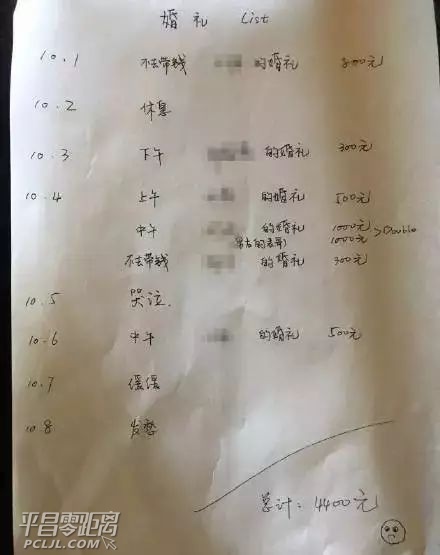 婚礼 List
10.1 不去带钱 的婚礼 800元
10.2 休息
10.3 下午 的婚礼 300元
10.4 上午 的婚礼 500元
中午 的婚礼 1000元
1000元 >Double
不去带钱 的婚礼 300元
10.5 哭泣.
10.6 中午 的婚礼 500元
10.7 缓缓
10.8 发愁
总计: 4400元
平昌零距离
PCLJL.COM